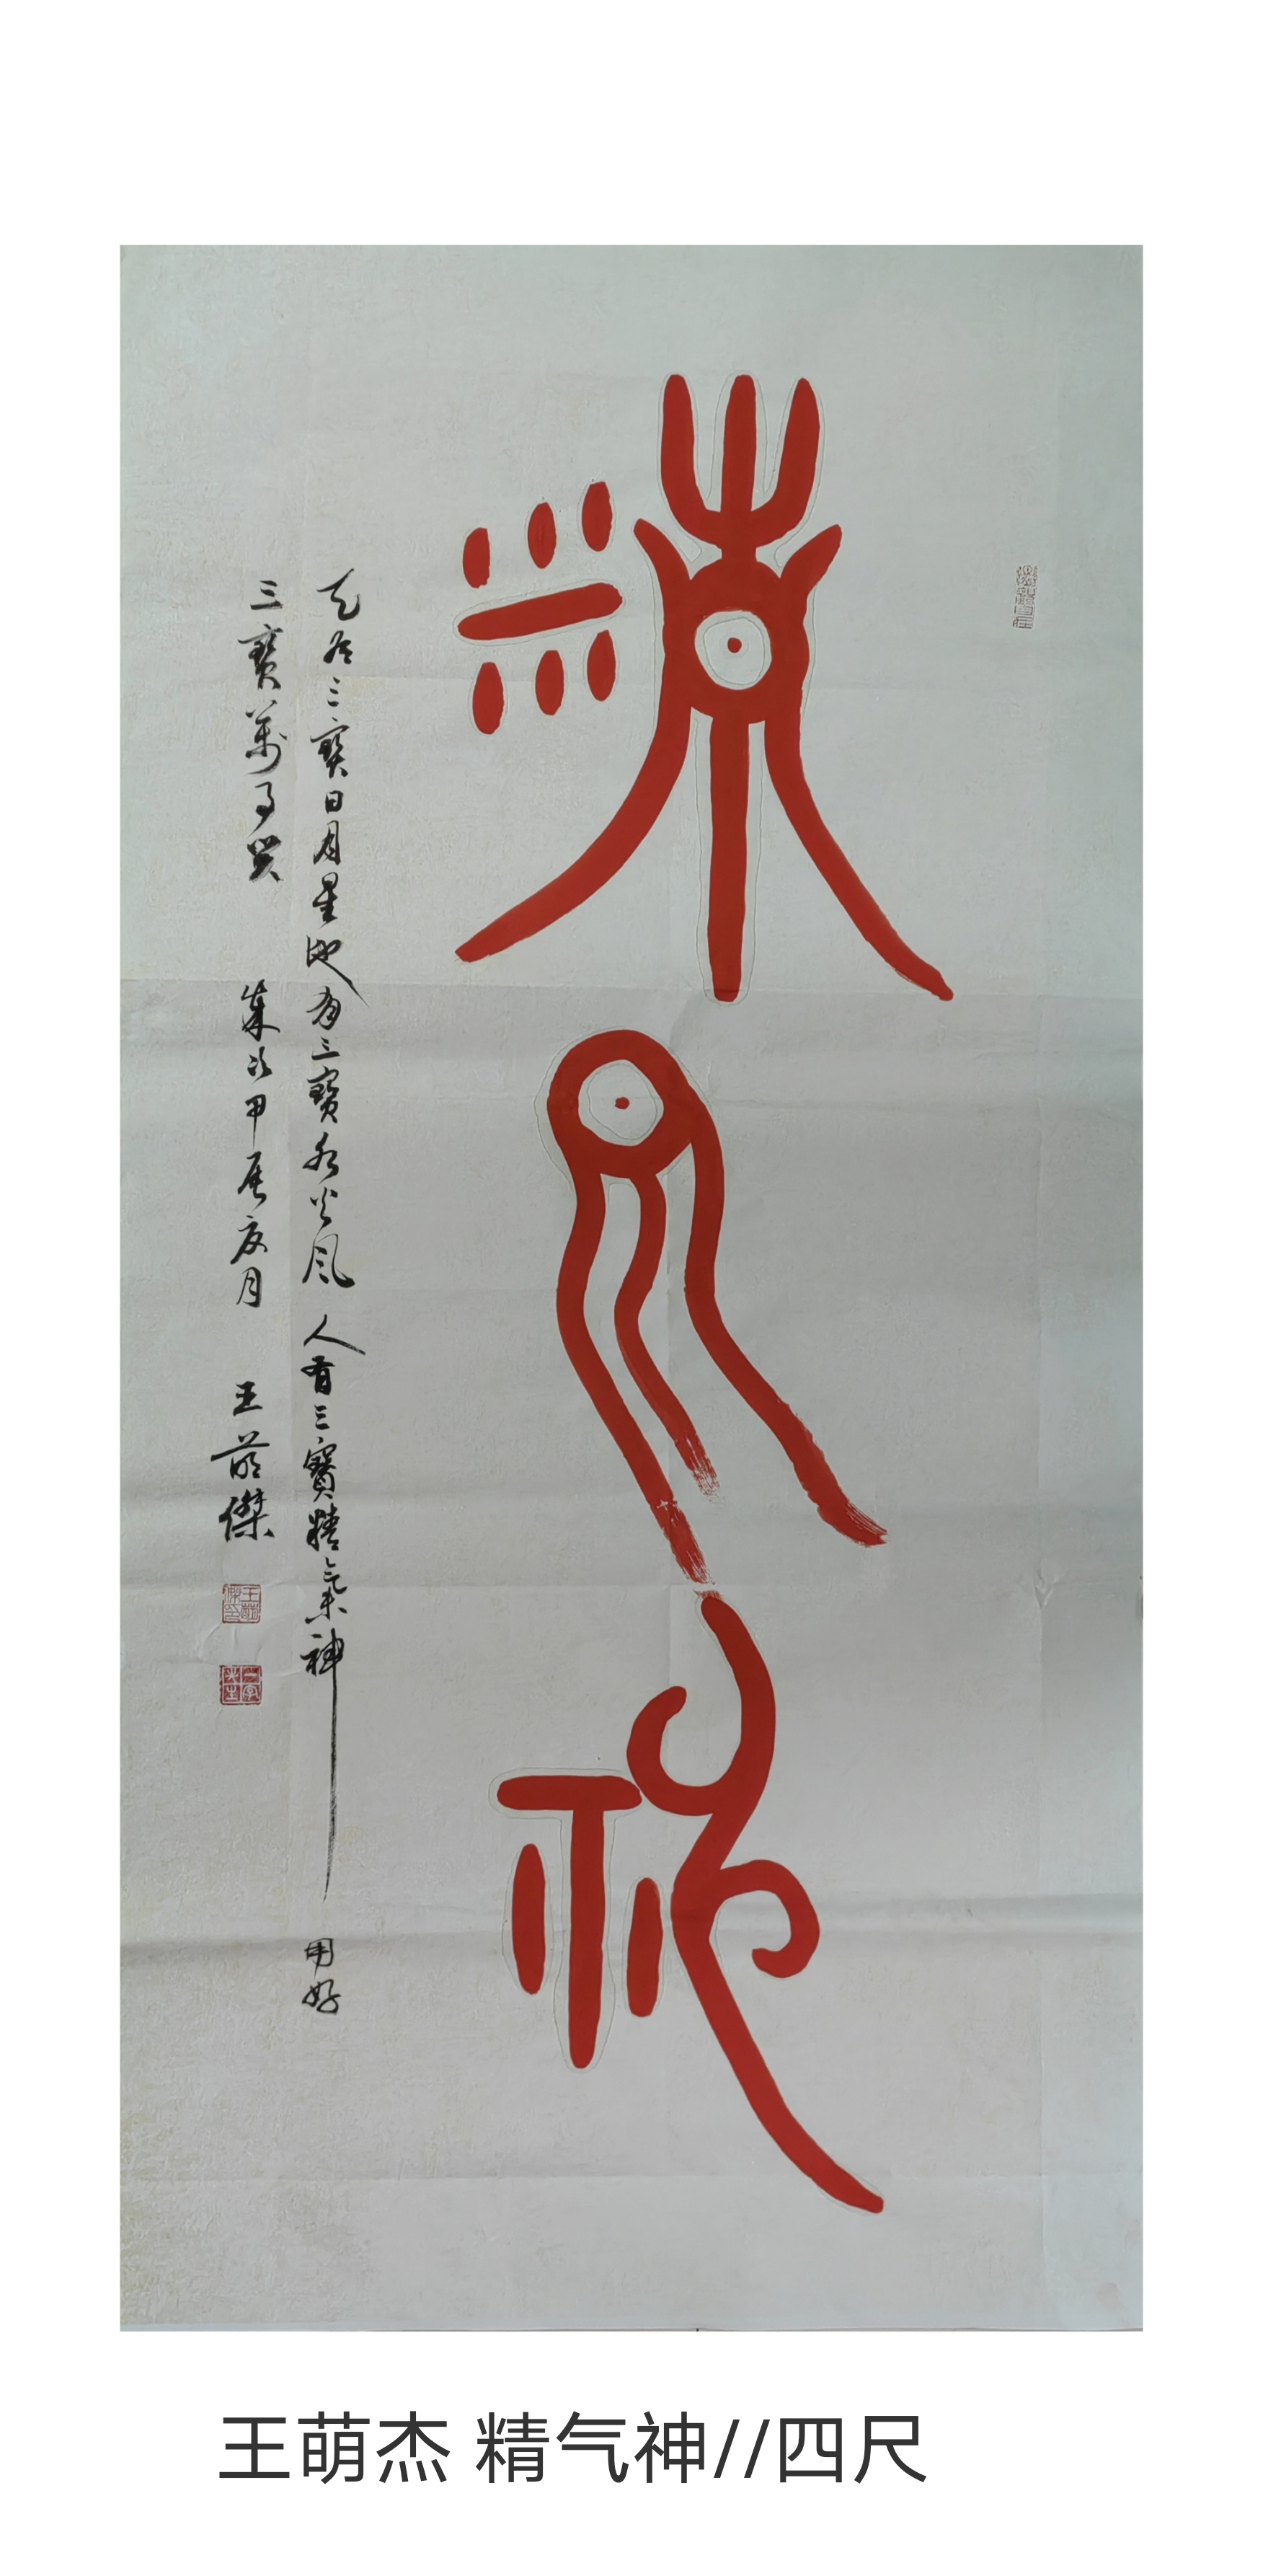 精气神
天有三寶日月星地有三寶水火風人有三寶精氣神用好
三寶萬事興 歲次甲辰夏月 王萌傑
王萌杰 精气神//四尺